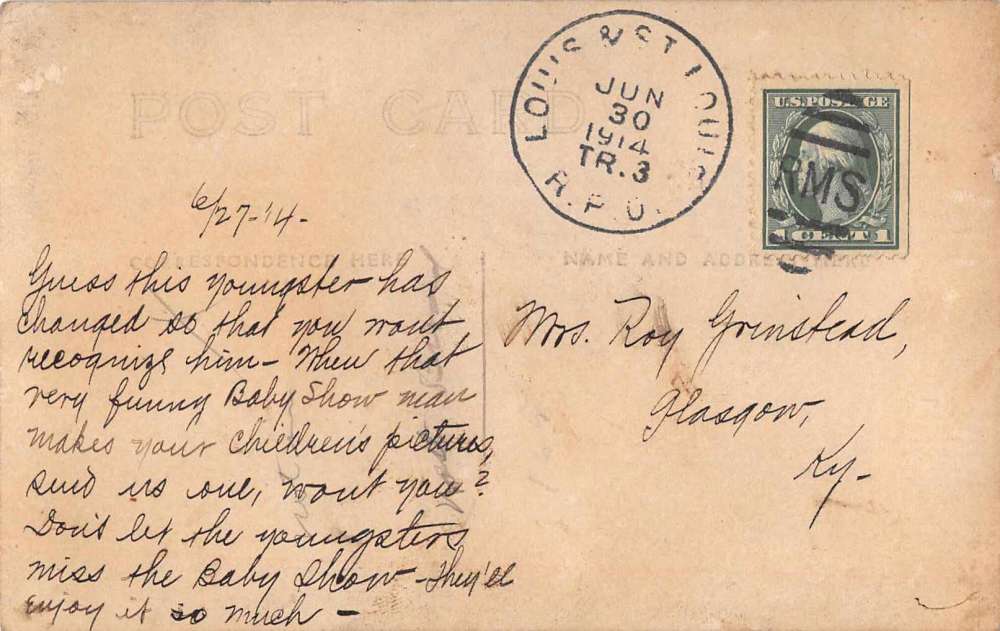 LOUIS & ST. LOUIS
JUN
30
1914
TR. 3
R.P.O.
U.S. POSTAGE
RMS
1 CENT 1
POST CARD
CORRESPONDENCE HERE
NAME AND ADDRESS HERE
6/27-'14-
Guess this youngster has
changed so that you wont
recognize him - When that
very funny Baby Show man
makes your children's pictures,
send us one, wont you?
Don't let the youngsters
miss the Baby Show - They'll
enjoy it so much -
Mrs. Roy Grinstead,
Glasgow,
Ky-